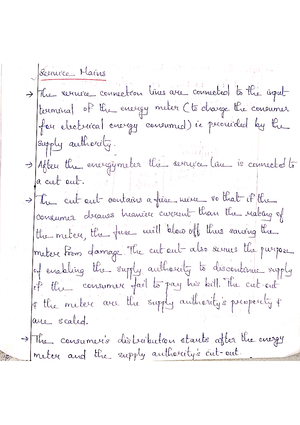 Service Mains
→ The service connection lines are connected to the input
terminal of the energy meter (to charge the consumer
for electrical energy consumed) is provided by the
supply authority.
→ After the energymeter the service line is connected to
a cut out.
→ The cut out contains a fuse wire so that if the
consumer draws heavier current than the rating of
the meter, the fuse will blow off thus saving the
meter from damage. The cut out also serves the purpose
of enabling the supply authority to discontinue supply
if the consumer fail to pay his bill. The cut out
& the meter are the supply authority's property &
are sealed.
→ The consumer's distribution starts after the energy
meter and the supply authority's cut-out.